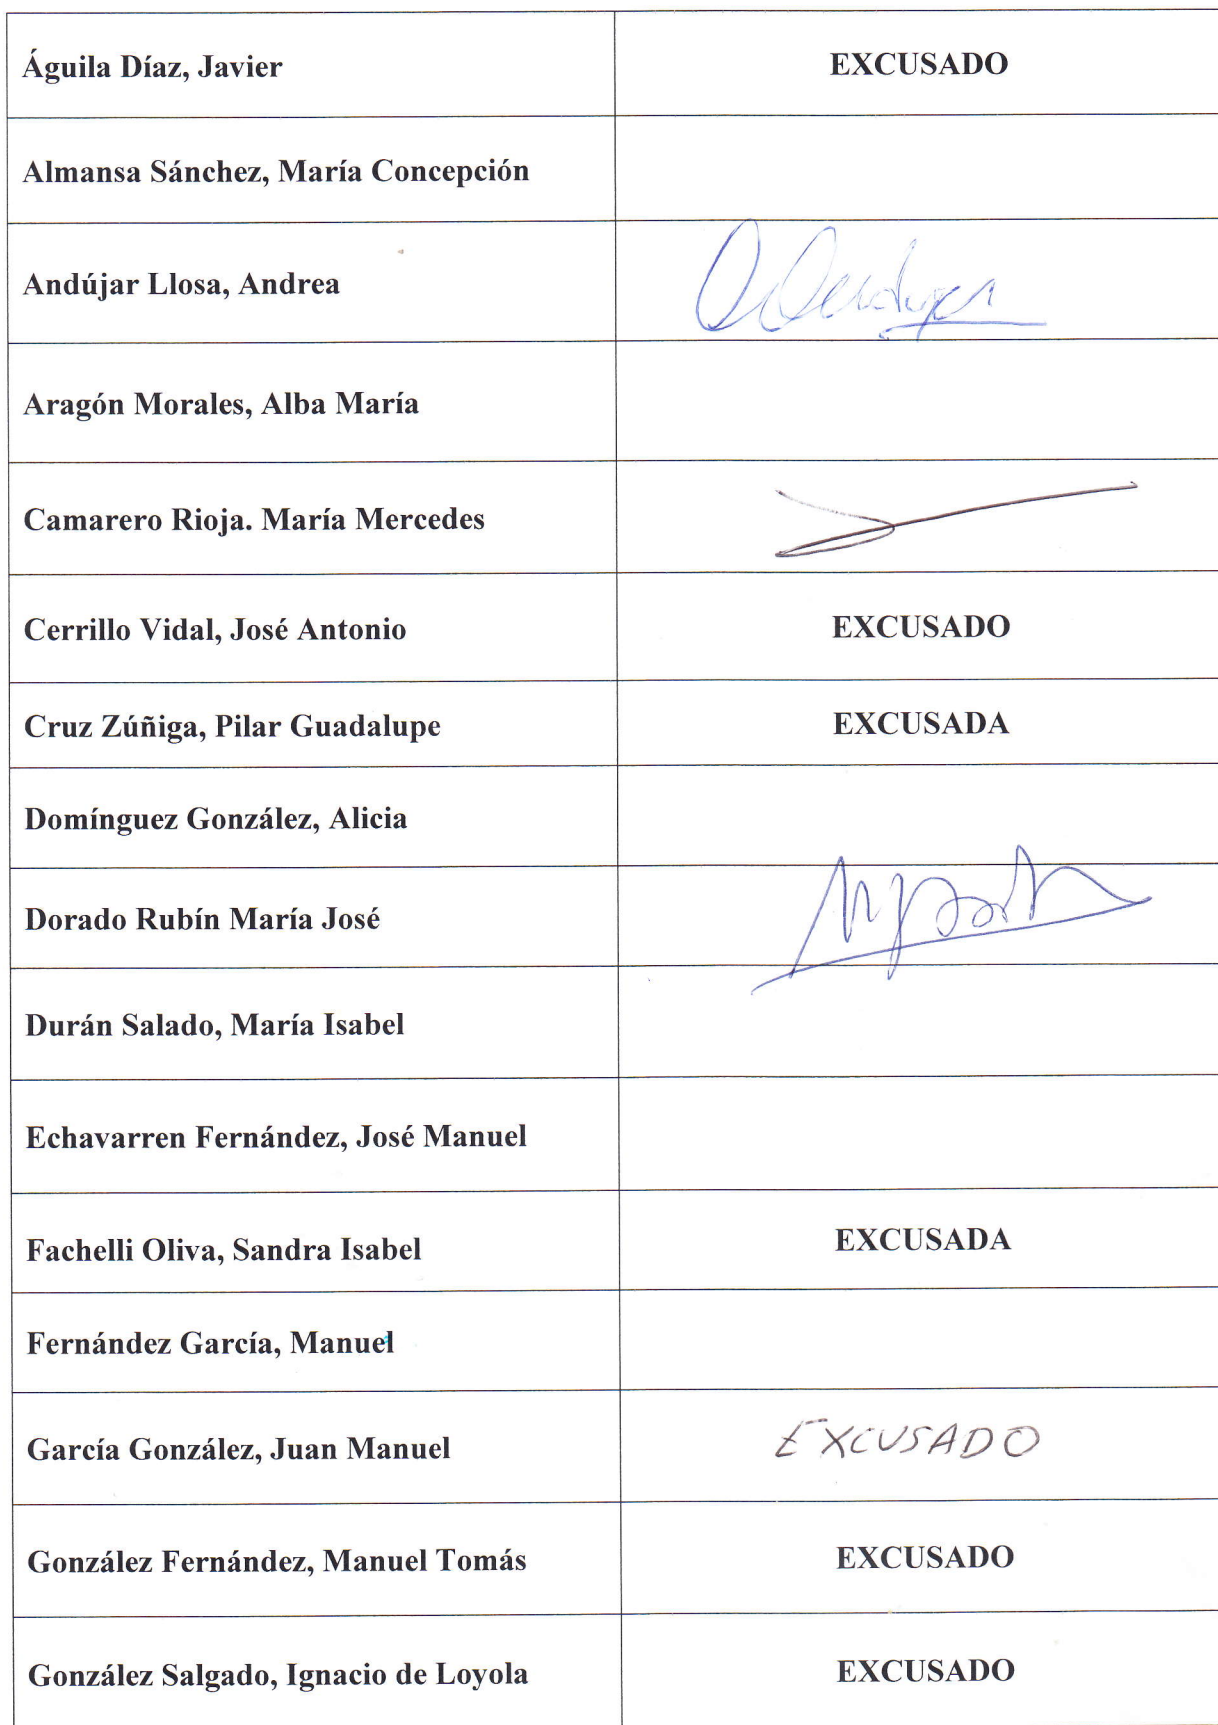 Águila Díaz, Javier EXCUSADO
Almansa Sánchez, María Concepción
Andújar Llosa, Andrea
Aragón Morales, Alba María
Camarero Rioja. María Mercedes
Cerrillo Vidal, José Antonio EXCUSADO
Cruz Zúñiga, Pilar Guadalupe EXCUSADA
Domínguez González, Alicia
Dorado Rubín María José
Durán Salado, María Isabel
Echavarren Fernández, José Manuel
Fachelli Oliva, Sandra Isabel EXCUSADA
Fernández García, Manuel
García González, Juan Manuel EXCUSADO
González Fernández, Manuel Tomás EXCUSADO
González Salgado, Ignacio de Loyola EXCUSADO